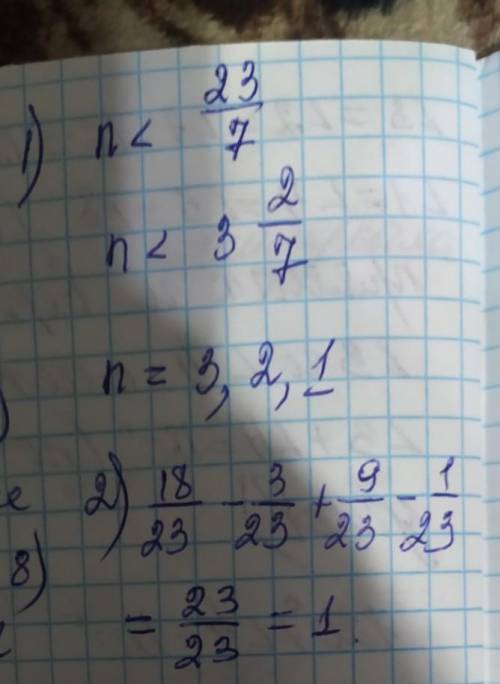 1) n < 23/7
n < 3 2/7
n = 3, 2, 1
2) 18/23 - 3/23 + 9/23 - 1/23
8)
= 23/23 = 1.